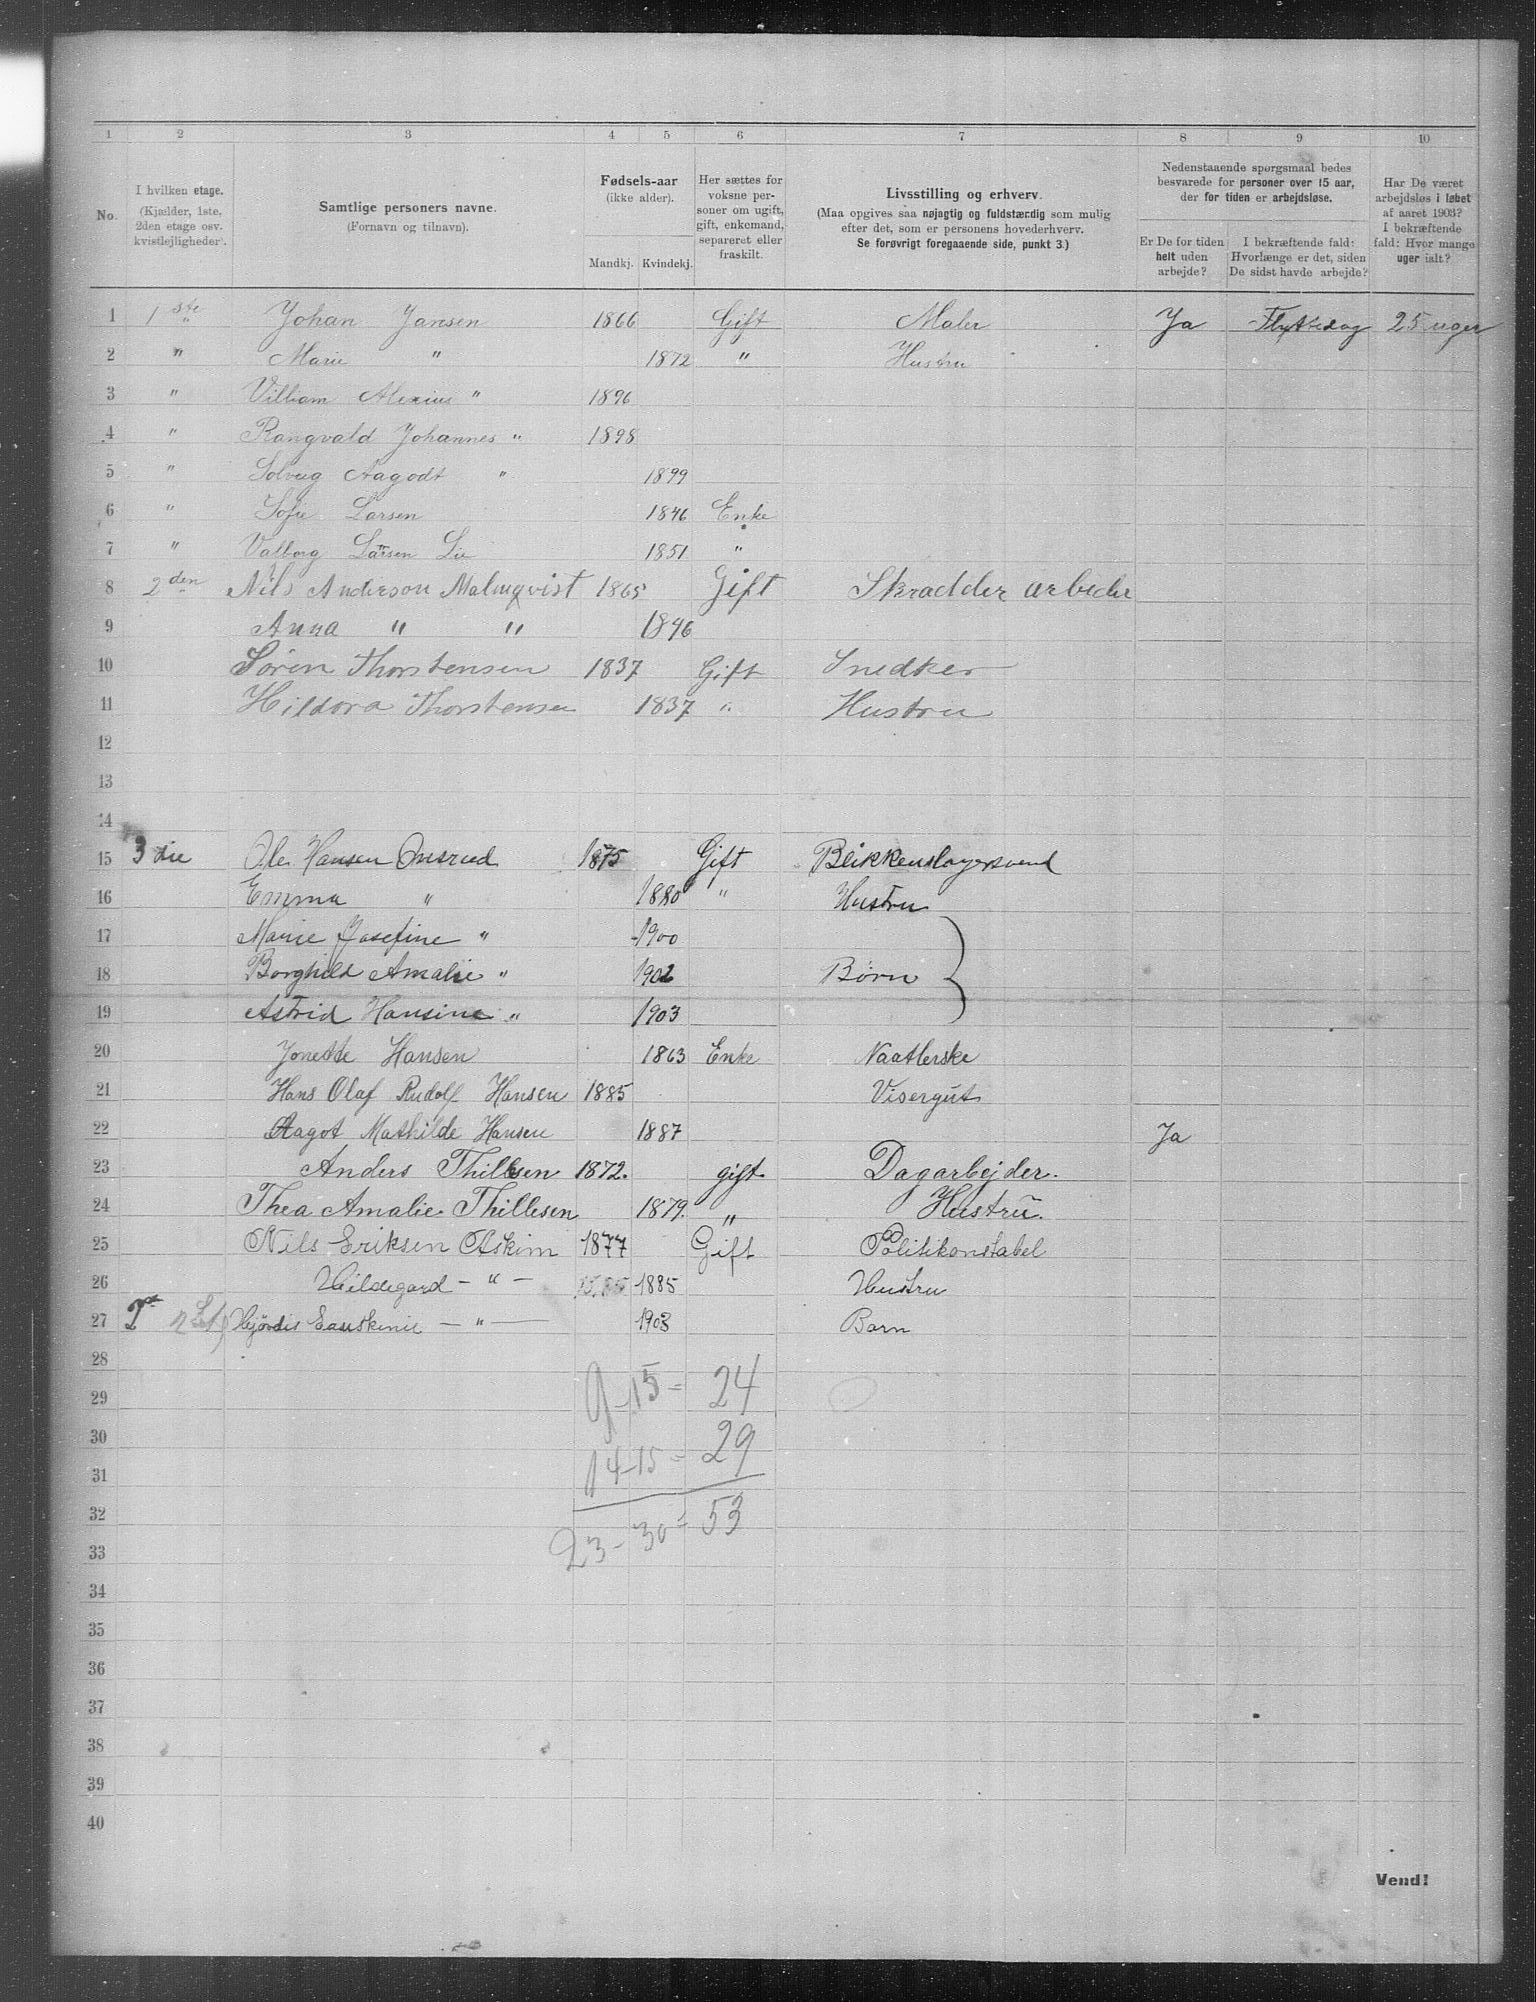 1 2 3 4 5 6 7 8 9 10
No. I hvilken etage. (Kjælder, 1ste, 2den etage osv. kvistlejligheder). Samtlige personers navne. (Fornavn og tilnavn). Fødsels-aar (ikke alder). Mandkj. Kvindekj. Her sættes for voksne personer om ugift, gift, enkemand, separeret eller fraskilt. Livsstilling og erhverv. (Maa opgives saa nøjagtig og fuldstærdig som mulig efter det, som er personens hovederhverv. Se forøvrigt foregaaende side, punkt 3.) Nedenstaaende spørgsmaal bedes besvarede for personer over 15 aar, der for tiden er arbejdsløse. Er De for tiden helt uden arbejde? I bekræftende fald: Hvorlænge er det, siden De sidst havde arbejde? Har De været arbejdsløs i løbet af aaret 1903? I bekræftende fald: Hvor mange uger ialt?
1 1ste Johan Jansen 1866 Gift Maler Ja Flyttedag 25 uger
2 " Marie " 1872 " Hustru
3 " Villiam Alexius " 1896
4 " Rangvald Johannes " 1898
5 " Solveig Aagodt " 1899
6 " Sofie Larsen 1846 Enke
7 " Valborg Larsen Lie 1851 "
8 2den Nils Anderson Malmqvist 1865 Gift Skradder arbeder
9 Anna " " 1846
10 Søren Thorstensen 1837 Gift Snedker
11 Hildora Thorstensen 1837 " Hustru
12
13
14
15 3die Ole Hansen Onsrud 1875 Gift Blikkenslagersvend
16 Emma " 1880 " Hustru
17 Marie Josefine " 1900
18 Borghild Amalie " 1902 Børn
19 Astrid Hansine " 1903
20 Jonette Hansen 1863 Enke Naatlerske
21 Hans Olaf Rudolf Hansen 1885 Visergut
22 Aagot Mathilde Hansen 1887 Ja
23 Anders Thillesen 1872. gift Dagarbejder.
24 Thea Amalie Thillesen 1879. " Hustru.
25 Nils Eriksen Askim 1877 Gift Politikonstabel
26 Hildegard - " - 1885 1885 Hustru
27 Hjördis - " - 1903 Barn
28
29 9-15 = 24
30
31 14-15 = 29
32
33 23-30 = 53
34
35
36
37
38
39
40
Vend!